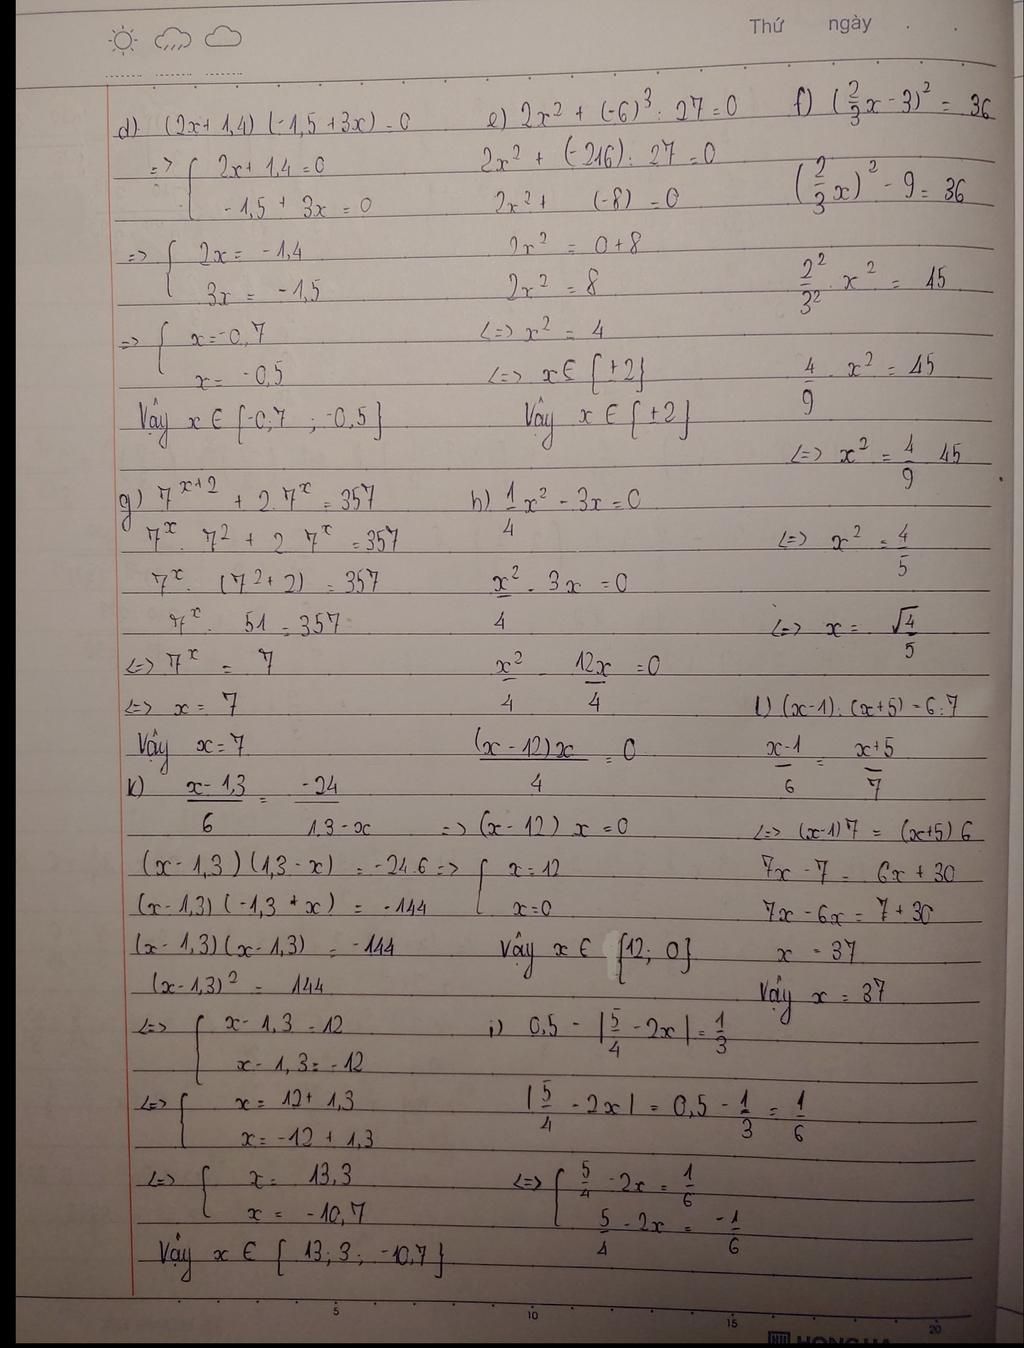 Thứ ngày
d) (2x + 1,4) (-1,5 + 3x) = 0
=> { 2x + 1,4 = 0
-1,5 + 3x = 0
=> { 2x = -1,4
3x = -1,5
=> { x = -0,7
x = -0,5
Vậy x ∈ {-0,7 ; -0,5}
e) 2x² + (-6)³ : 27 = 0
2x² + (-216) : 27 = 0
2x² + (-8) = 0
2x² = 0 + 8
2x² = 8
<=> x² = 4
<=> x ∈ {±2}
Vậy x ∈ {±2}
f) (2/3 x - 3)² = 36
(2/3 x)² - 9 = 36
2²/3² . x² = 45
4/9 x² = 45
<=> x² = 4/9 45
<=> x² = 4/5
<=> x = √4/5
g) 7^(x+2) + 2. 7^x = 357
7^x . 7² + 2 7^x = 357
7^x . (7² + 2) = 357
7^x . 51 = 357
<=> 7^x = 7
<=> x = 7
Vậy x = 7
h) 1/4 x² - 3x = 0
x²/4 - 3x = 0
x²/4 - 12x/4 = 0
(x - 12)x/4 = 0
=> (x - 12) x = 0
=> { x = 12
x = 0
Vậy x ∈ {12; 0}
l) (x-1) : (x+5) = 6:7
x-1/6 = x+5/7
<=> (x-1)7 = (x+5) 6
7x - 7 = 6x + 30
7x - 6x = 7 + 30
x = 37
Vậy x = 37
k) x - 1,3/6 = -24/1,3 - x
(x - 1,3)(1,3 - x) = -24.6
(x - 1,3)(-1,3 + x) = -144
(x - 1,3)(x - 1,3) = -144
(x - 1,3)² = 144
<=> { x - 1,3 = 12
x - 1,3 = -12
<=> { x = 12 + 1,3
x = -12 + 1,3
<=> { x = 13,3
x = -10,7
Vậy x ∈ { 13,3 ; -10,7}
i) 0,5 - |5/4 - 2x| = 1/3
|5/4 - 2x| = 0,5 - 1/3 = 1/6
<=> { 5/4 - 2x = 1/6
5/4 - 2x = -1/6
5 10 15 20
HONG HA